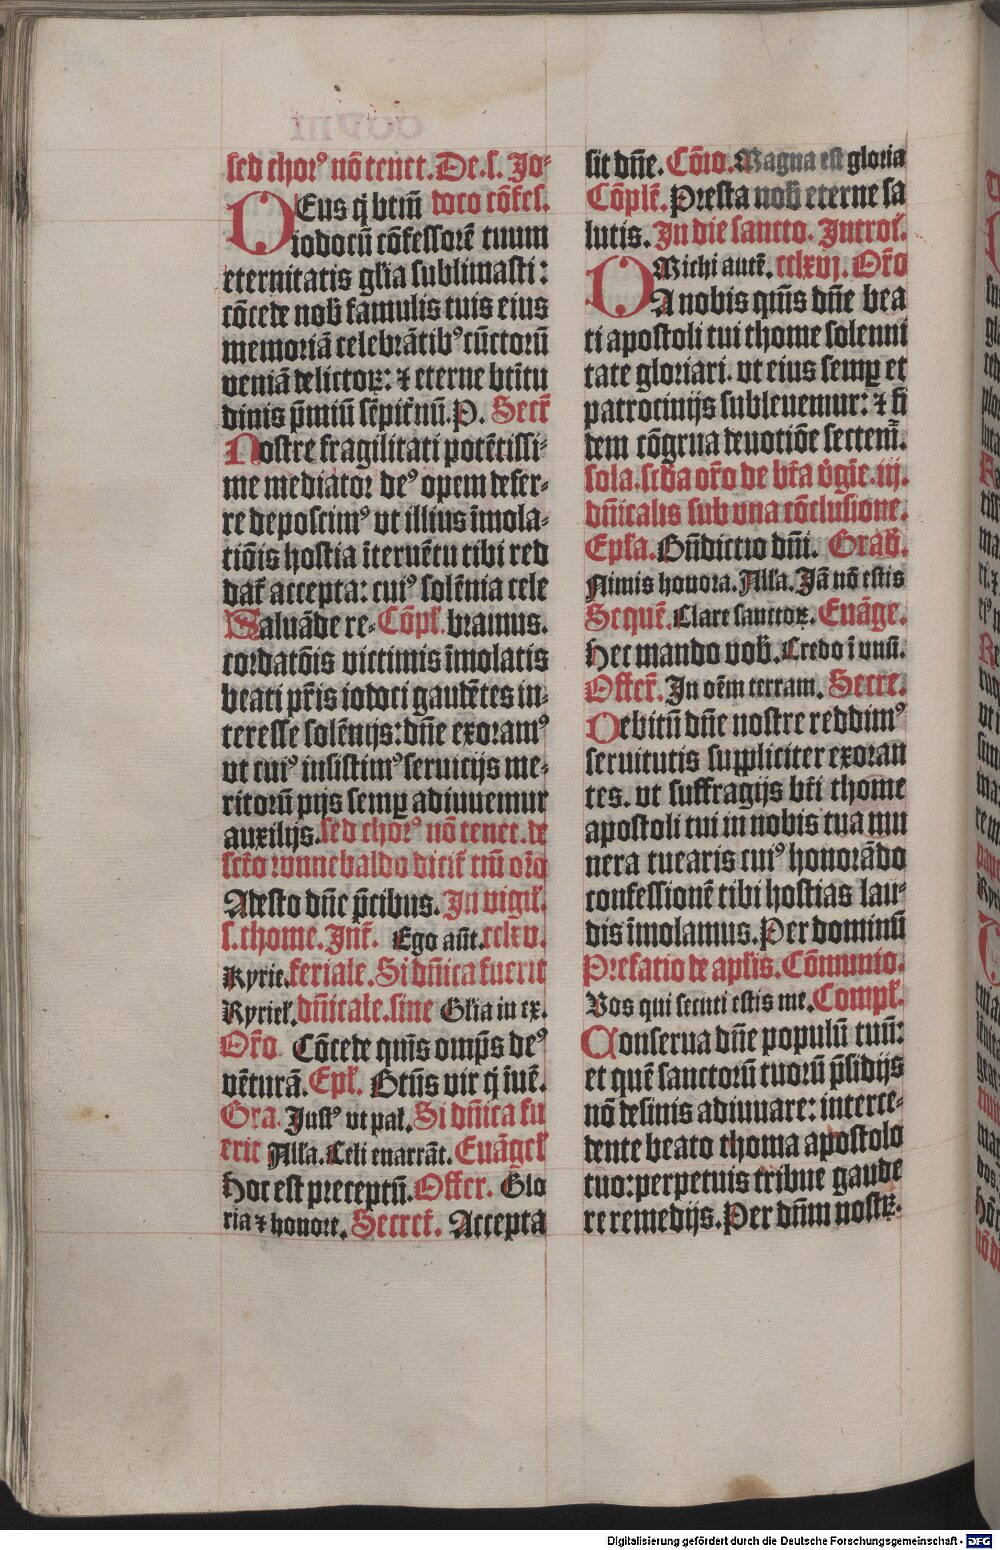 sed chorꝰ nō tenet. De. s. Jo⸗
DEus q̇ btm̄ doco cōfes.
iodocū cōfessorē tuum
eternitatis gl̄ia sublimasti:
cōcede nob̄ famulis tuis eius
memoriā celebrātibꝰ cūctorū
veniā delictoꝝ: ⁊ eterne btītu
dinis p̄miū sēpit̄nū. P. Secr̄
Nostre fragilitati potētissi⸗
me mediator deꝰ opem defer⸗
re deposcimꝰ vt illius īmola⸗
tiōis hostia īteruētu tibi red
dat̄ accepta: cuiꝰ solēnia cele
Saluāde re⸗ Cōpl̄. bramus.
cordatōis victimis īmolatis
beati pr̄is iodoci gaudētes in⸗
teresse solēnijs: dn̄e exoramꝰ
vt cuiꝰ insistimꝰ seruicijs me⸗
ritorū pijs semꝑ adiuuemur
auxilijs. sed chorꝰ nō tenet. de
scto wnnebaldo dicit̄ tm̄ oro
Adesto dn̄e p̄cibus. In vigil̄.
s. thome. Int̄. Ego aūt. cclxv.
Kyrie. feriale. Si dn̄ica fuerit
Kyriel̄. dn̄icale. sine Gl̄ia in ex.
Oro. Cōcede qm̄s omp̄s deꝰ
vēturā. Epl̄. Btūs vir q̇ īuē.
Gra. Justꝰ vt pal. Si dn̄ica fu
erit Alla. Celi enarrāt. Euāgel̄
Hoc est preceptū. Offer. Glo
ria ⁊ honore. Secret̄. Accepta
sit dn̄e. Cōio. Magna est gloria
Cōplē. Presta nob̄ eterne sa
lutis. In die sancto. Introi.
Michi aut̄. cclxvj. Oro
DA nobis qm̄s dn̄e bea
ti apostoli tui thome solenni
tate gloriari. vt eius semꝑ et
patrocinijs subleuemur: ⁊ fi
dem cōgrua deuotiōe sectem̄.
sola. scda oro de bt̄a v̇gīe. iij.
dn̄icalis sub vna cōclusione.
Epl̄a. Bn̄dictio dn̄i. Grad̄.
Nimis honora. Alla. Jā nō estis
Sequē. Clare sanctoꝝ. Euāge.
Hec mando vob̄. Credo ī vnū.
Offer̄. In oēm terram. Secre.
Debitū dn̄e nostre reddimꝰ
seruitutis suppliciter exoran
tes. vt suffragijs bt̄i thome
apostoli tui in nobis tua mu
nera tuearis cuiꝰ honorādo
confessionē tibi hostias lau⸗
dis īmolamus. Per dominū
Prefatio de apl̄is. Cōmunio.
Vos qui secuti estis me. Compl̄.
Conserua dn̄e populū tuū:
et quē sanctorū tuorū p̄sidijs
nō desinis adiuuare: interce⸗
dente beato thoma apostolo
tuo: perpetuis tribue gaude
re remedijs. Per dn̄m nostꝝ.
Digitalisierung gefördert durch die Deutsche Forschungsgemeinschaft - DFG